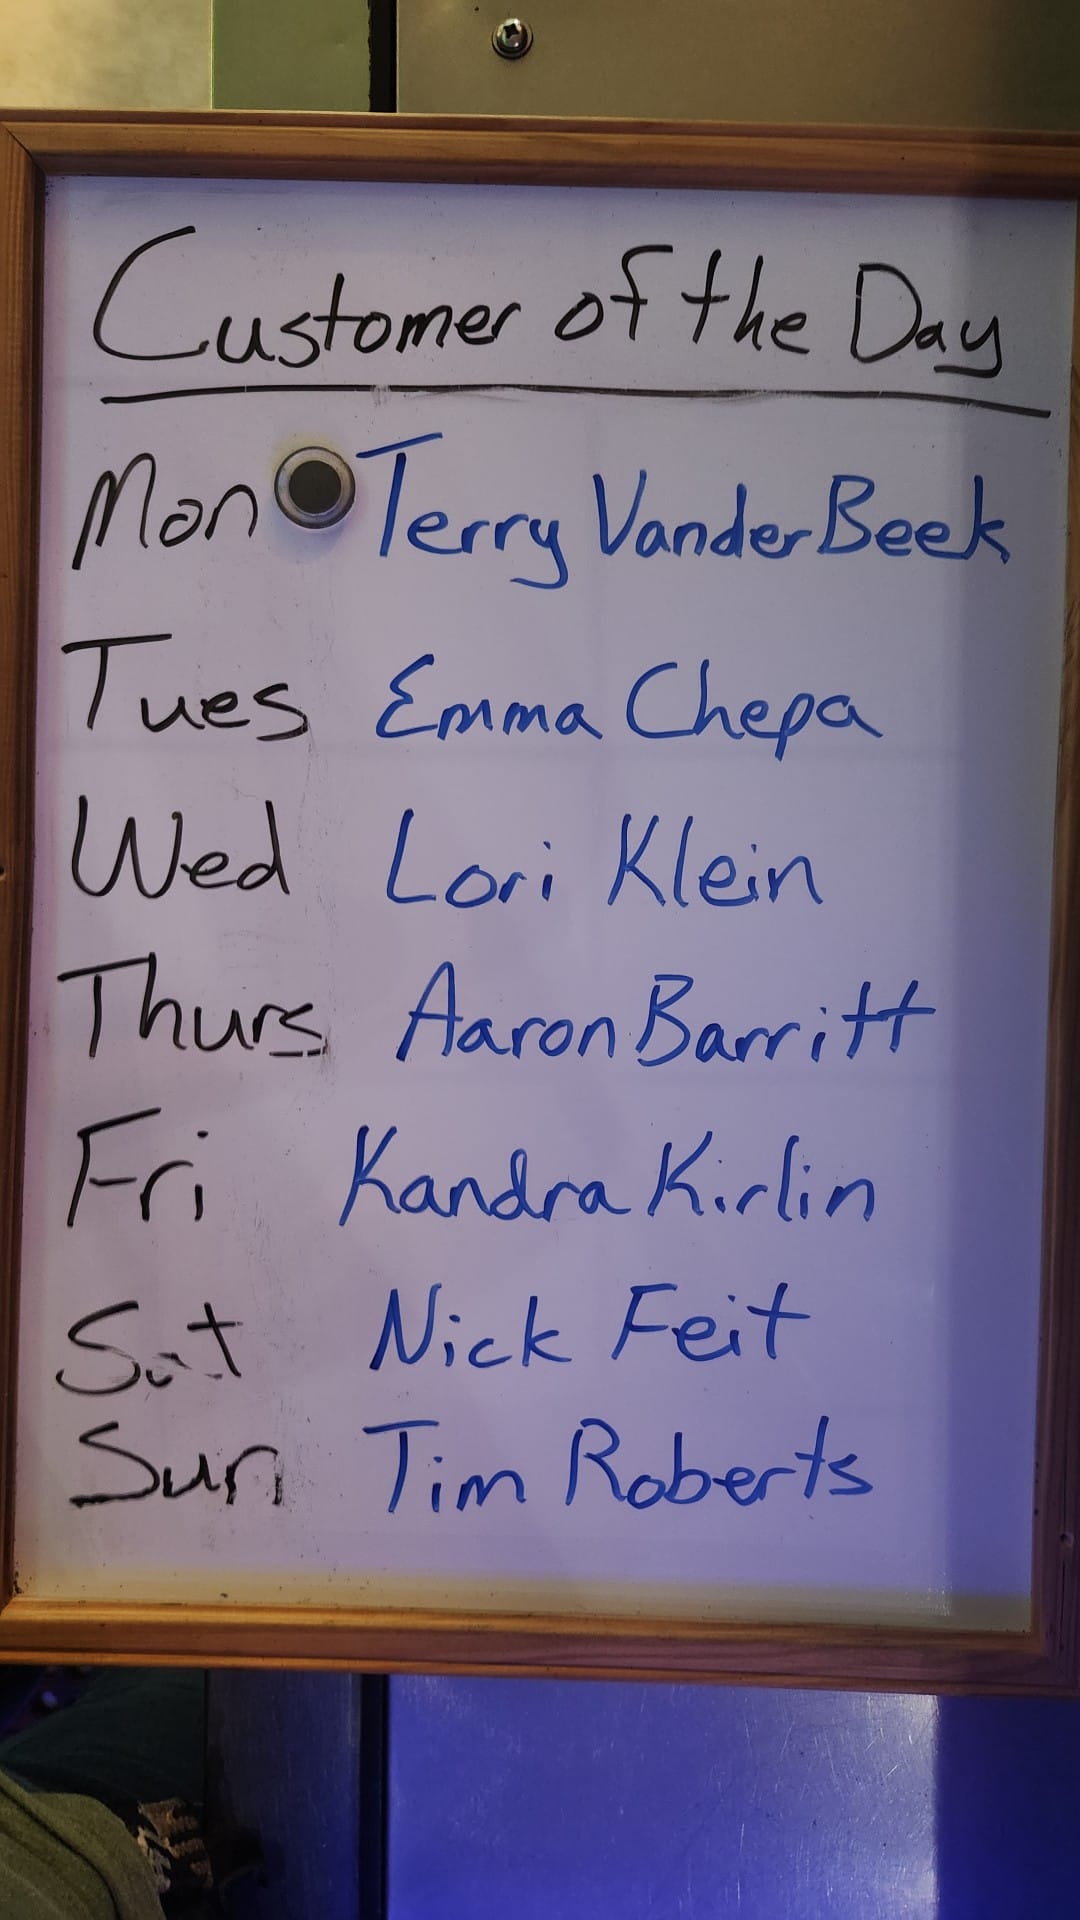 Customer of the Day
Mon Terry VanderBeek
Tues Emma Chepa
Wed Lori Klein
Thurs Aaron Barritt
Fri Kandra Kirlin
Sat Nick Feit
Sun Tim Roberts